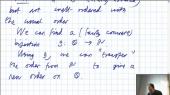 but not well-ordered with
the usual order
We can find a (fairly concrete)
bijection g: Q → N
Using g, we can "transfer"
the order from N to give a
new order on Q